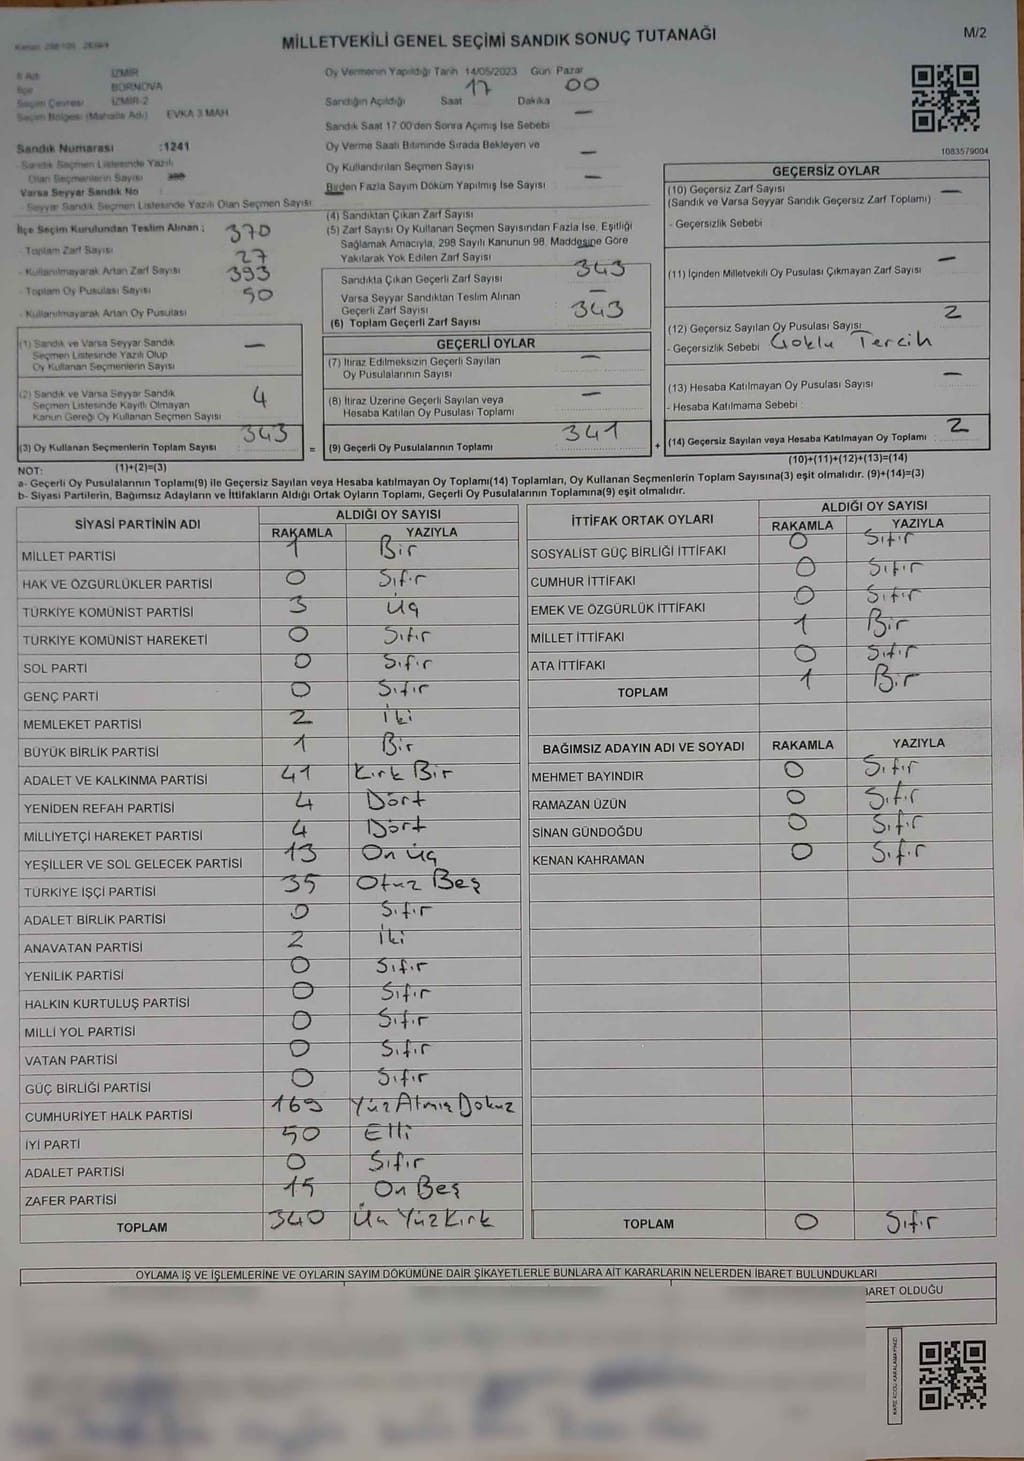 MİLLETVEKİLİ GENEL SEÇİMİ SANDIK SONUÇ TUTANAĞI
M/2
İl Adı İZMİR
İlçe BORNOVA
Seçim Çevresi İZMİR-2
Seçim Bölgesi (Mahalle Adı) EVKA 3 MAH
Sandık Numarası :1241
Sandık Seçmen Listesinde Yazılı
Olan Seçmenlerin Sayısı
Varsa Seyyar Sandık No
Seyyar Sandık Seçmen Listesinde Yazılı Olan Seçmen Sayısı
Oy Vermenin Yapıldığı Tarih 14/05/2023 Gün Pazar
Sandığın Açıldığı Saat 17 Dakika 00
Sandık Saat 17.00'den Sonra Açımış İse Sebebi —
Oy Verme Saati Bitiminde Sırada Bekleyen ve
Oy Kullandırılan Seçmen Sayısı —
Birden Fazla Sayım Döküm Yapılmış İse Sayısı —
1083579004
İlçe Seçim Kurulundan Teslim Alınan :
- Toplam Zarf Sayısı 370
- Kullanılmayarak Artan Zarf Sayısı 27
- Toplam Oy Pusulası Sayısı 393
- Kullanılmayarak Artan Oy Pusulası 50
(1) Sandık ve Varsa Seyyar Sandık
Seçmen Listesinde Yazılı Olup
Oy Kullanan Seçmenlerin Sayısı —
(2) Sandık ve Varsa Seyyar Sandık
Seçmen Listesinde Kayıtlı Olmayan
Kanun Gereği Oy Kullanan Seçmen Sayısı 4
(3) Oy Kullanan Seçmenlerin Toplam Sayısı 343
(1)+(2)=(3)
(4) Sandıktan Çıkan Zarf Sayısı
(5) Zarf Sayısı Oy Kullanan Seçmen Sayısından Fazla İse, Eşitliği
Sağlamak Amacıyla, 298 Sayılı Kanunun 98. Maddesine Göre
Yakılarak Yok Edilen Zarf Sayısı —
Sandıkta Çıkan Geçerli Zarf Sayısı 343
Varsa Seyyar Sandıktan Teslim Alınan
Geçerli Zarf Sayısı —
(6) Toplam Geçerli Zarf Sayısı 343
GEÇERLİ OYLAR
(7) İtiraz Edilmeksizin Geçerli Sayılan
Oy Pusulalarının Sayısı —
(8) İtiraz Üzerine Geçerli Sayılan veya
Hesaba Katılan Oy Pusulası Toplamı —
= (9) Geçerli Oy Pusulalarının Toplamı 341
GEÇERSİZ OYLAR
(10) Geçersiz Zarf Sayısı —
(Sandık ve Varsa Seyyar Sandık Geçersiz Zarf Toplamı)
- Geçersizlik Sebebi
(11) İçinden Milletvekili Oy Pusulası Çıkmayan Zarf Sayısı —
(12) Geçersiz Sayılan Oy Pusulası Sayısı 2
- Geçersizlik Sebebi Çoklu Tercih
(13) Hesaba Katılmayan Oy Pusulası Sayısı —
- Hesaba Katılmama Sebebi
+ (14) Geçersiz Sayılan veya Hesaba Katılmayan Oy Toplamı 2
(10)+(11)+(12)+(13)=(14)
NOT:
a- Geçerli Oy Pusulalarının Toplamı(9) ile Geçersiz Sayılan veya Hesaba katılmayan Oy Toplamı(14) Toplamları, Oy Kullanan Seçmenlerin Toplam Sayısına(3) eşit olmalıdır. (9)+(14)=(3)
b- Siyasi Partilerin, Bağımsız Adayların ve İttifakların Aldığı Ortak Oyların Toplamı, Geçerli Oy Pusulalarının Toplamına(9) eşit olmalıdır.
SİYASİ PARTİNİN ADI ALDIĞI OY SAYISI
RAKAMLA YAZIYLA
MİLLET PARTİSİ 1 Bir
HAK VE ÖZGÜRLÜKLER PARTİSİ 0 Sıfır
TÜRKİYE KOMÜNİST PARTİSİ 3 Üç
TÜRKİYE KOMÜNİST HAREKETİ 0 Sıfır
SOL PARTİ 0 Sıfır
GENÇ PARTİ 0 Sıfır
MEMLEKET PARTİSİ 2 İki
BÜYÜK BİRLİK PARTİSİ 1 Bir
ADALET VE KALKINMA PARTİSİ 41 Kırk Bir
YENİDEN REFAH PARTİSİ 4 Dört
MİLLİYETÇİ HAREKET PARTİSİ 4 Dört
YEŞİLLER VE SOL GELECEK PARTİSİ 13 On Üç
TÜRKİYE İŞÇİ PARTİSİ 35 Otuz Beş
ADALET BİRLİK PARTİSİ 0 Sıfır
ANAVATAN PARTİSİ 2 İki
YENİLİK PARTİSİ 0 Sıfır
HALKIN KURTULUŞ PARTİSİ 0 Sıfır
MİLLİ YOL PARTİSİ 0 Sıfır
VATAN PARTİSİ 0 Sıfır
GÜÇ BİRLİĞİ PARTİSİ 0 Sıfır
CUMHURİYET HALK PARTİSİ 169 Yüz Atmış Dokuz
İYİ PARTİ 50 Elli
ADALET PARTİSİ 0 Sıfır
ZAFER PARTİSİ 15 On Beş
TOPLAM 340 Üç Yüz Kırk
İTTİFAK ORTAK OYLARI ALDIĞI OY SAYISI
RAKAMLA YAZIYLA
SOSYALİST GÜÇ BİRLİĞİ İTTİFAKI 0 Sıfır
CUMHUR İTTİFAKI 0 Sıfır
EMEK VE ÖZGÜRLÜK İTTİFAKI 0 Sıfır
MİLLET İTTİFAKI 1 Bir
ATA İTTİFAKI 0 Sıfır
TOPLAM 1 Bir
BAĞIMSIZ ADAYIN ADI VE SOYADI RAKAMLA YAZIYLA
MEHMET BAYINDIR 0 Sıfır
RAMAZAN ÜZÜN 0 Sıfır
SİNAN GÜNDOĞDU 0 Sıfır
KENAN KAHRAMAN 0 Sıfır
TOPLAM 0 Sıfır
OYLAMA İŞ VE İŞLEMLERİNE VE OYLARIN SAYIM DÖKÜMÜNE DAİR ŞİKAYETLERLE BUNLARA AİT KARARLARIN NELERDEN İBARET BULUNDUKLARI
BARET OLDUĞU
KARE KODU KARALAMAYINIZ!